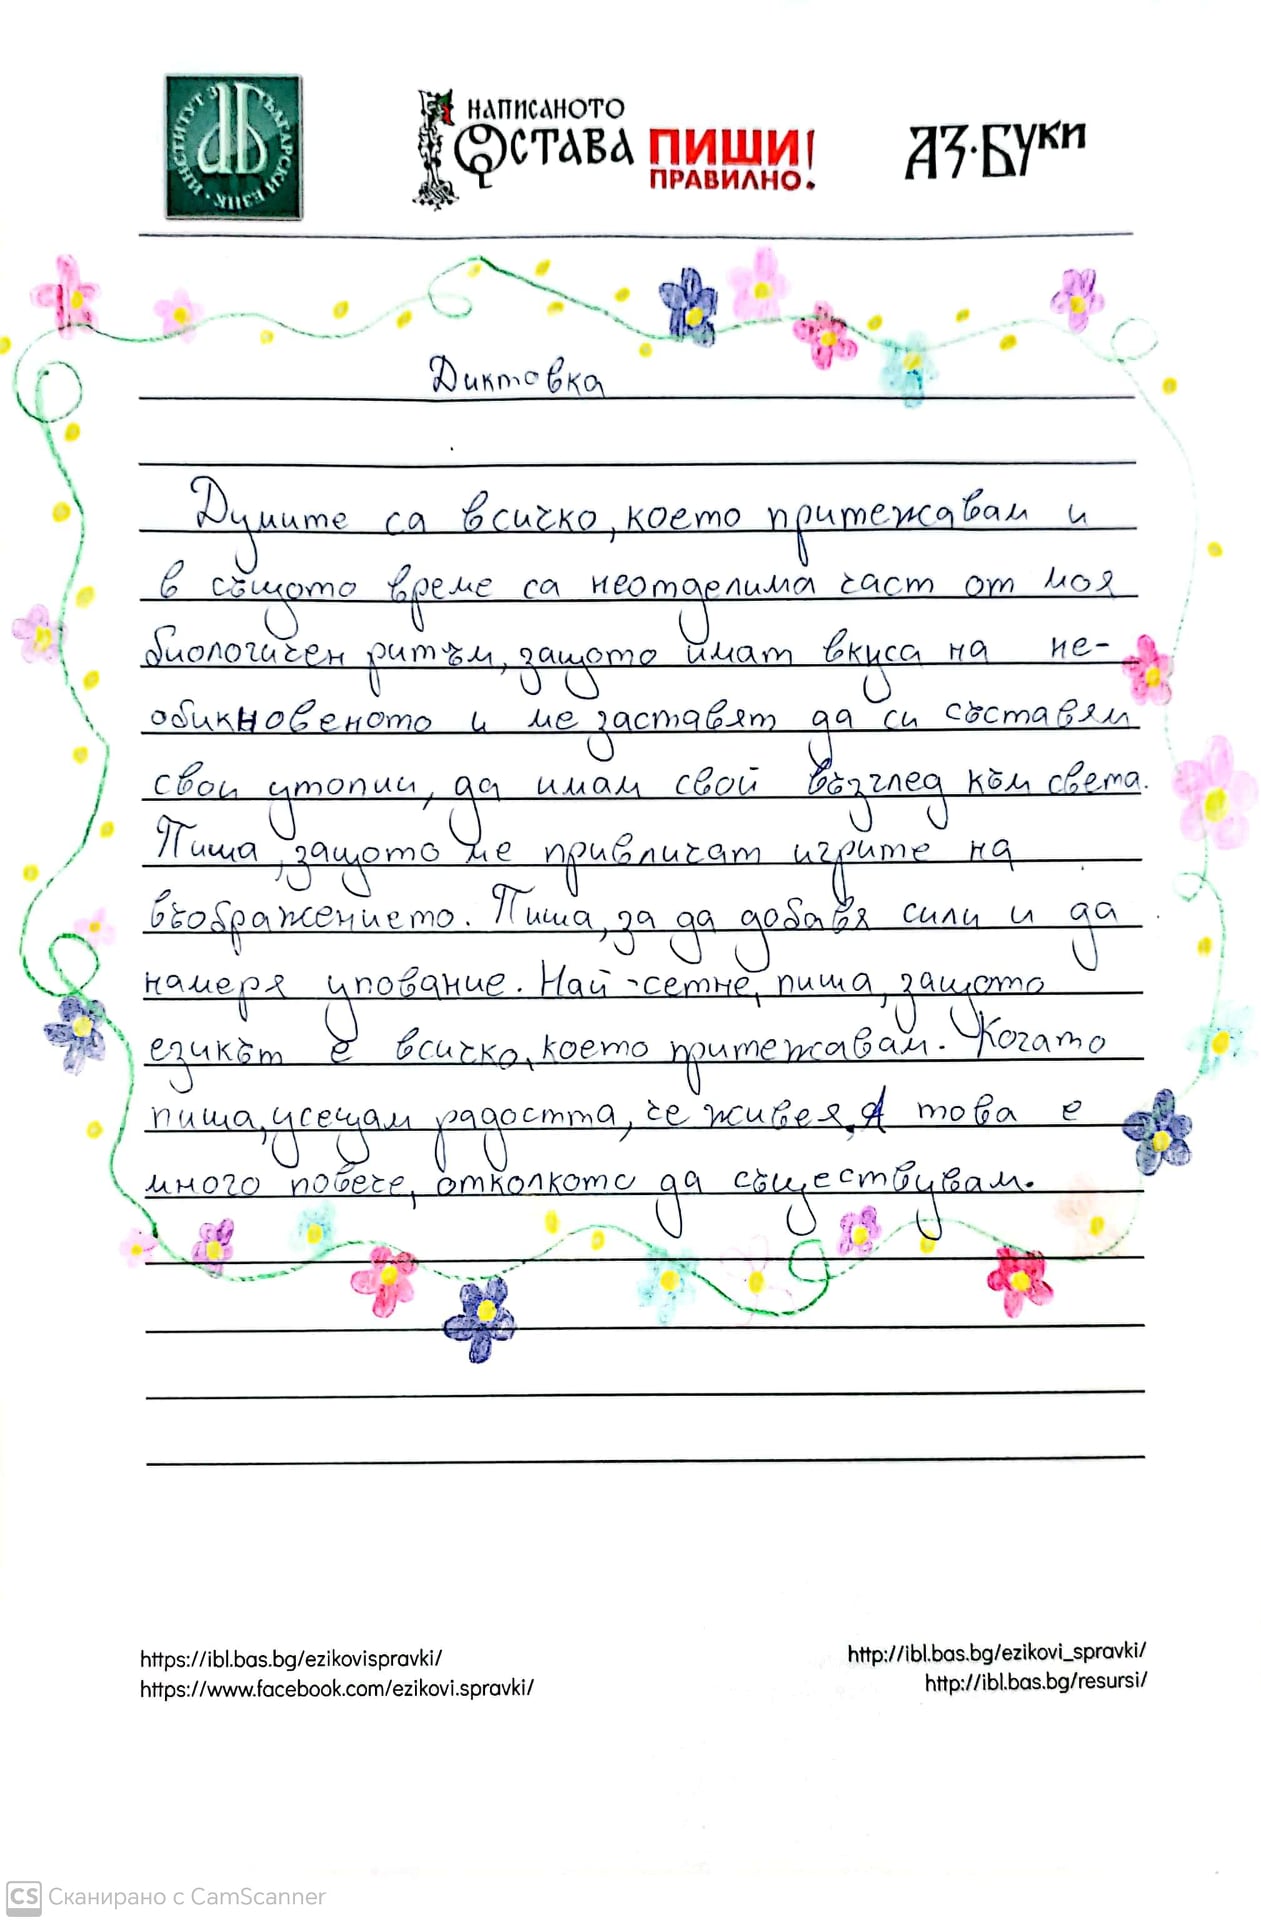 ИНСТИТУТ ЗА БЪЛГАРСКИ ЕЗИК
НАПИСАНОТО
ОСТАВА
ПИШИ
ПРАВИЛНО!
АЗ·БУКИ
Диктовка
Думите са всичко, което притежавам и
в същото време са неотделима част от моя
биологичен ритъм, защото имат вкуса на не-
обикновеното и ме заставят да си съставям
свои утопии, да имам свой възглед към света.
Пиша, защото ме привличат игрите на
въображението. Пиша, за да добавя сили и да
намеря упование. Най-сетне, пиша, защото
езикът е всичко, което притежавам. Когато
пиша, усещам радостта, че живея. А това е
много повече, отколкото да съществувам.
https://ibl.bas.bg/ezikovispravki/
https://www.facebook.com/ezikovi.spravki/
http://ibl.bas.bg/ezikovi_spravki/
http://ibl.bas.bg/resursi/
CS Сканирано с CamScanner